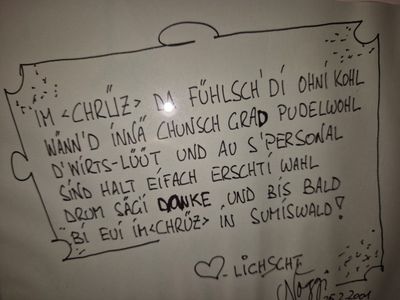 IM <CHRÜZ> DA FÜHLSCH'DI OHNI KOHL
WÄNN'D INNÄ CHUNSCH GRAD PUDELWOHL
D'WIRTS-LÜÜT UND AU S'PERSONAL
SIND HALT EIFACH ERSCHTI WAHL
DRUM SÄGI DANKE UND BIS BALD
BI EUI IM <CHRÜZ> IN SUMISWALD!
LICHSCHT
2001